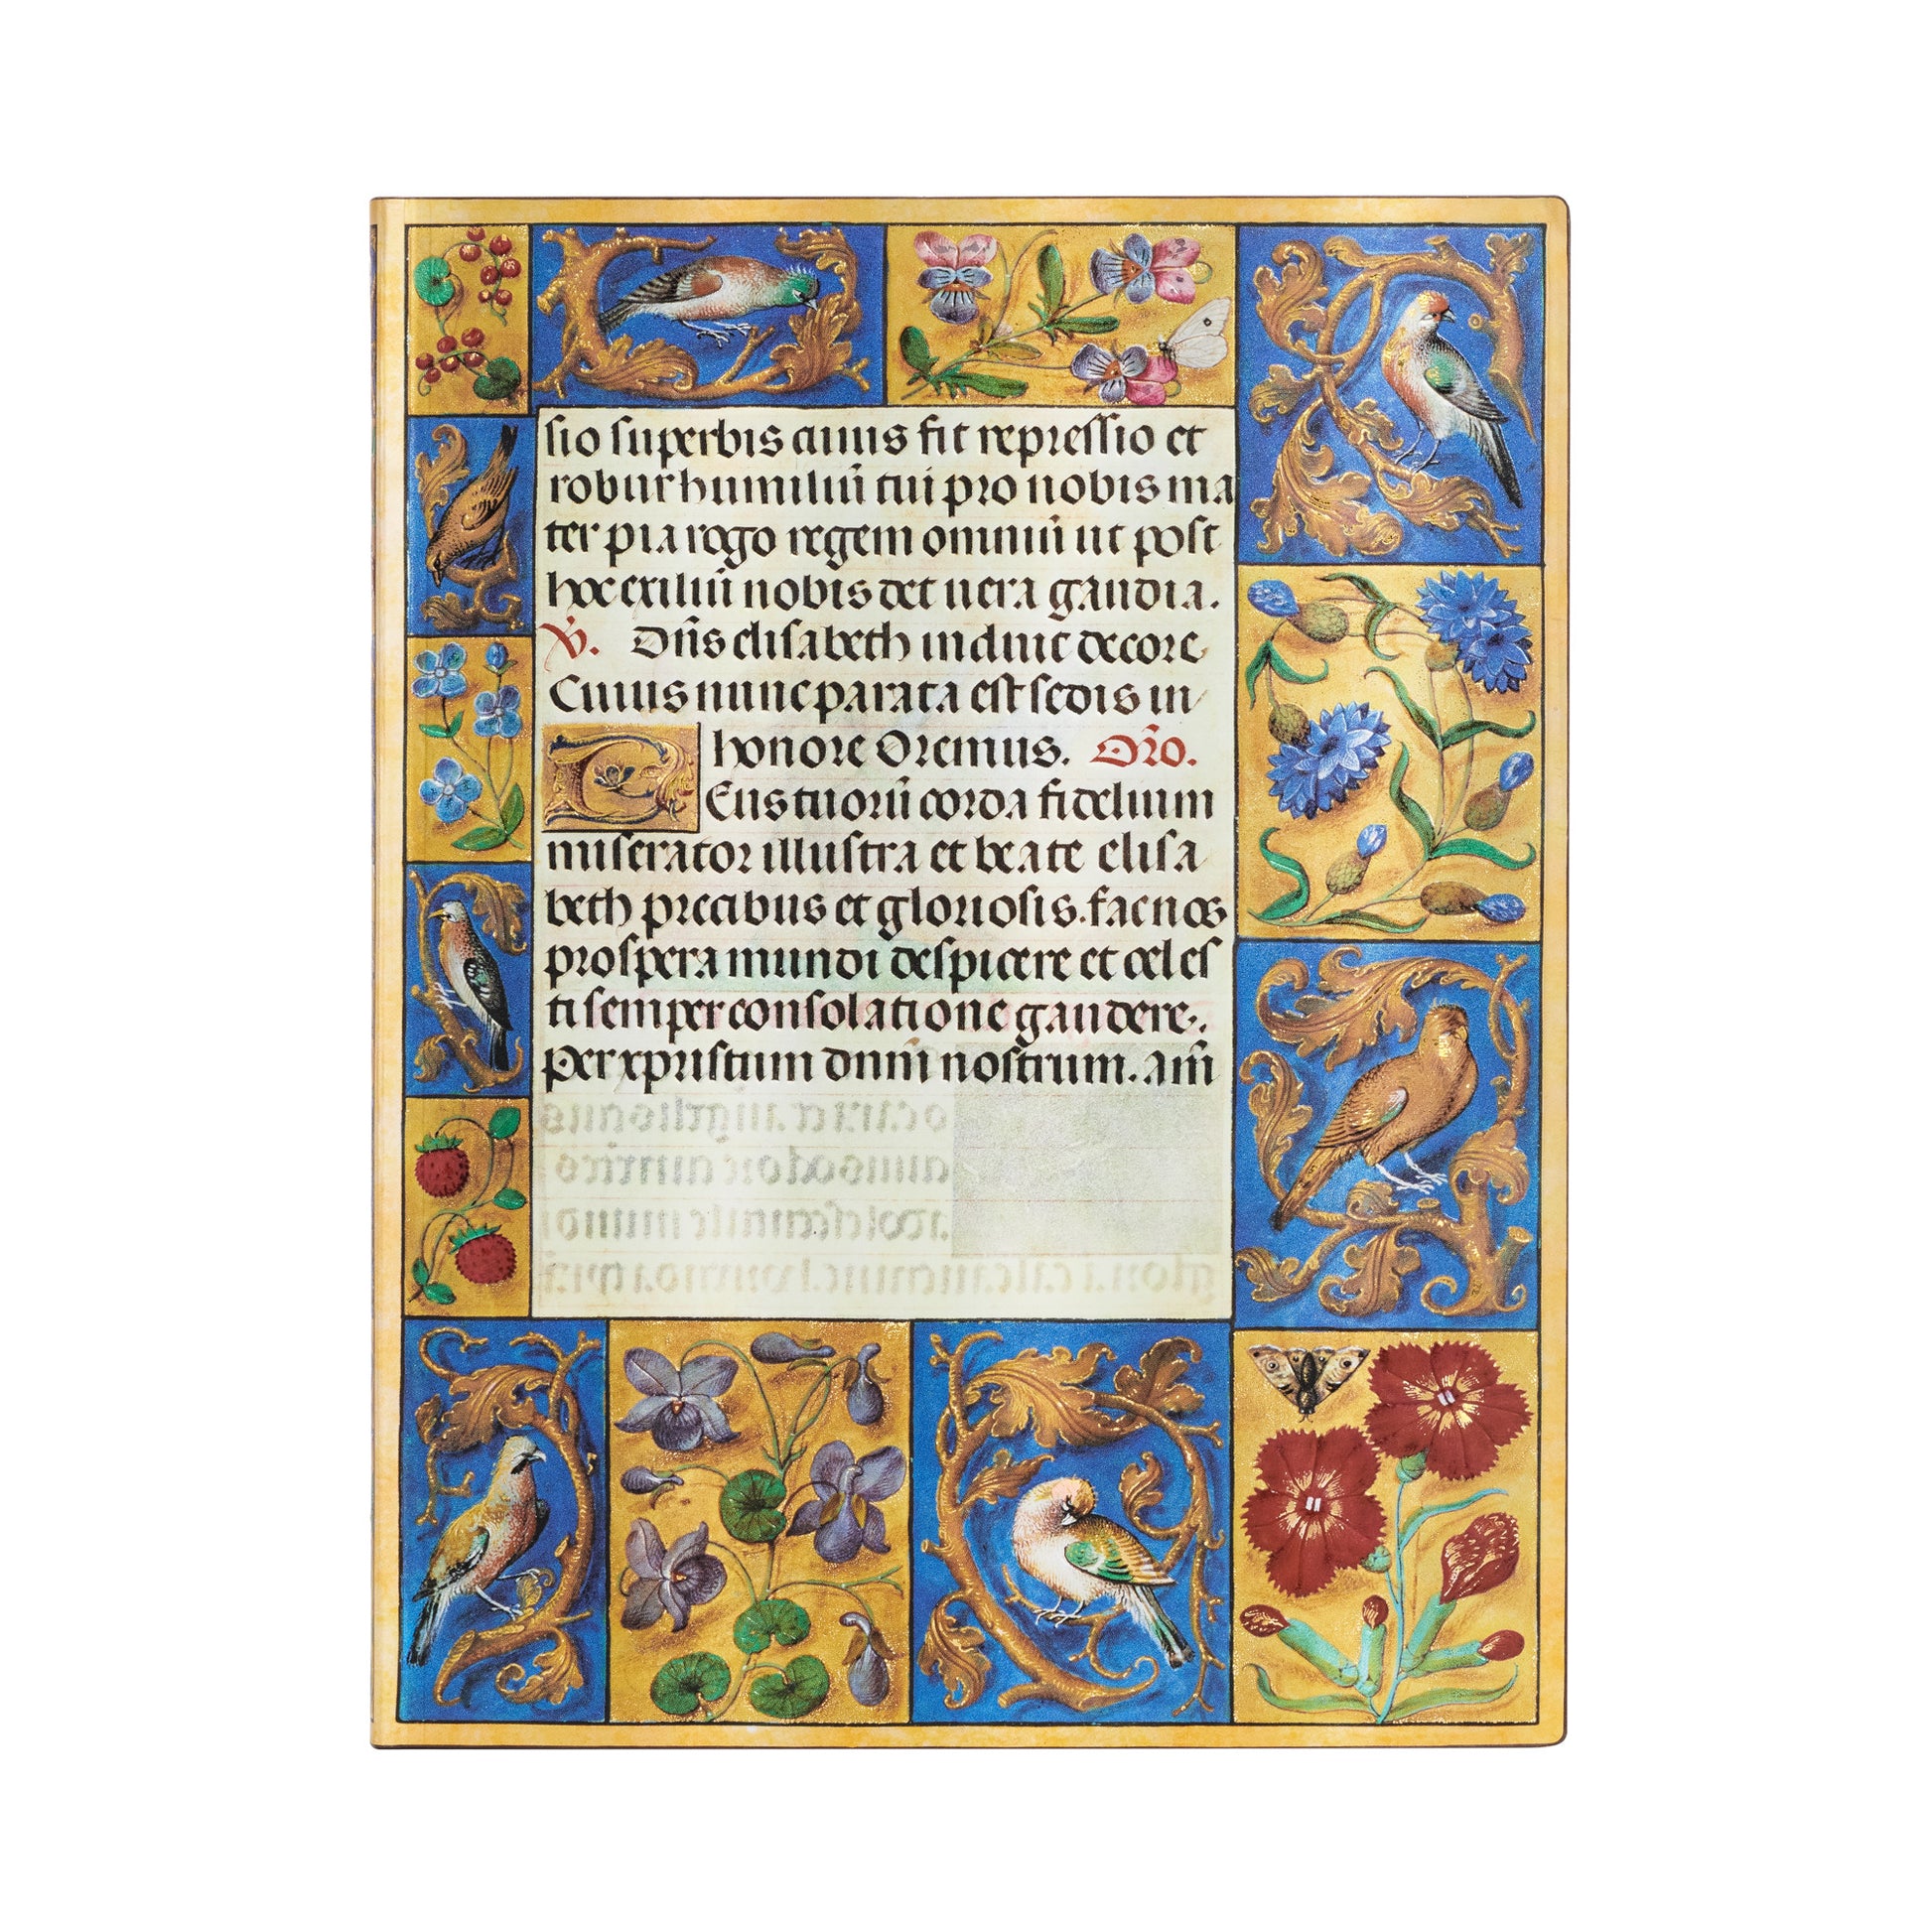 sio superbis cuius fit repressio et
robur humiliū tui pro nobis ma
ter pia rogo regem omniū ut post
hoc exiliū nobis det uera gaudia.
V̇. Dn̄s elisabeth induit decore
Cuius nunc parata est sedis in
honore Oremus. Or̄o.
DEus tuorū corda fidelium
miserator illustra et beate elisa
beth precibus et gloriosis. fac nos
prospera mundi despicere et celes
ti semper consolatione gaudere.
Per xpristum dnm̄ nostrum. am̄